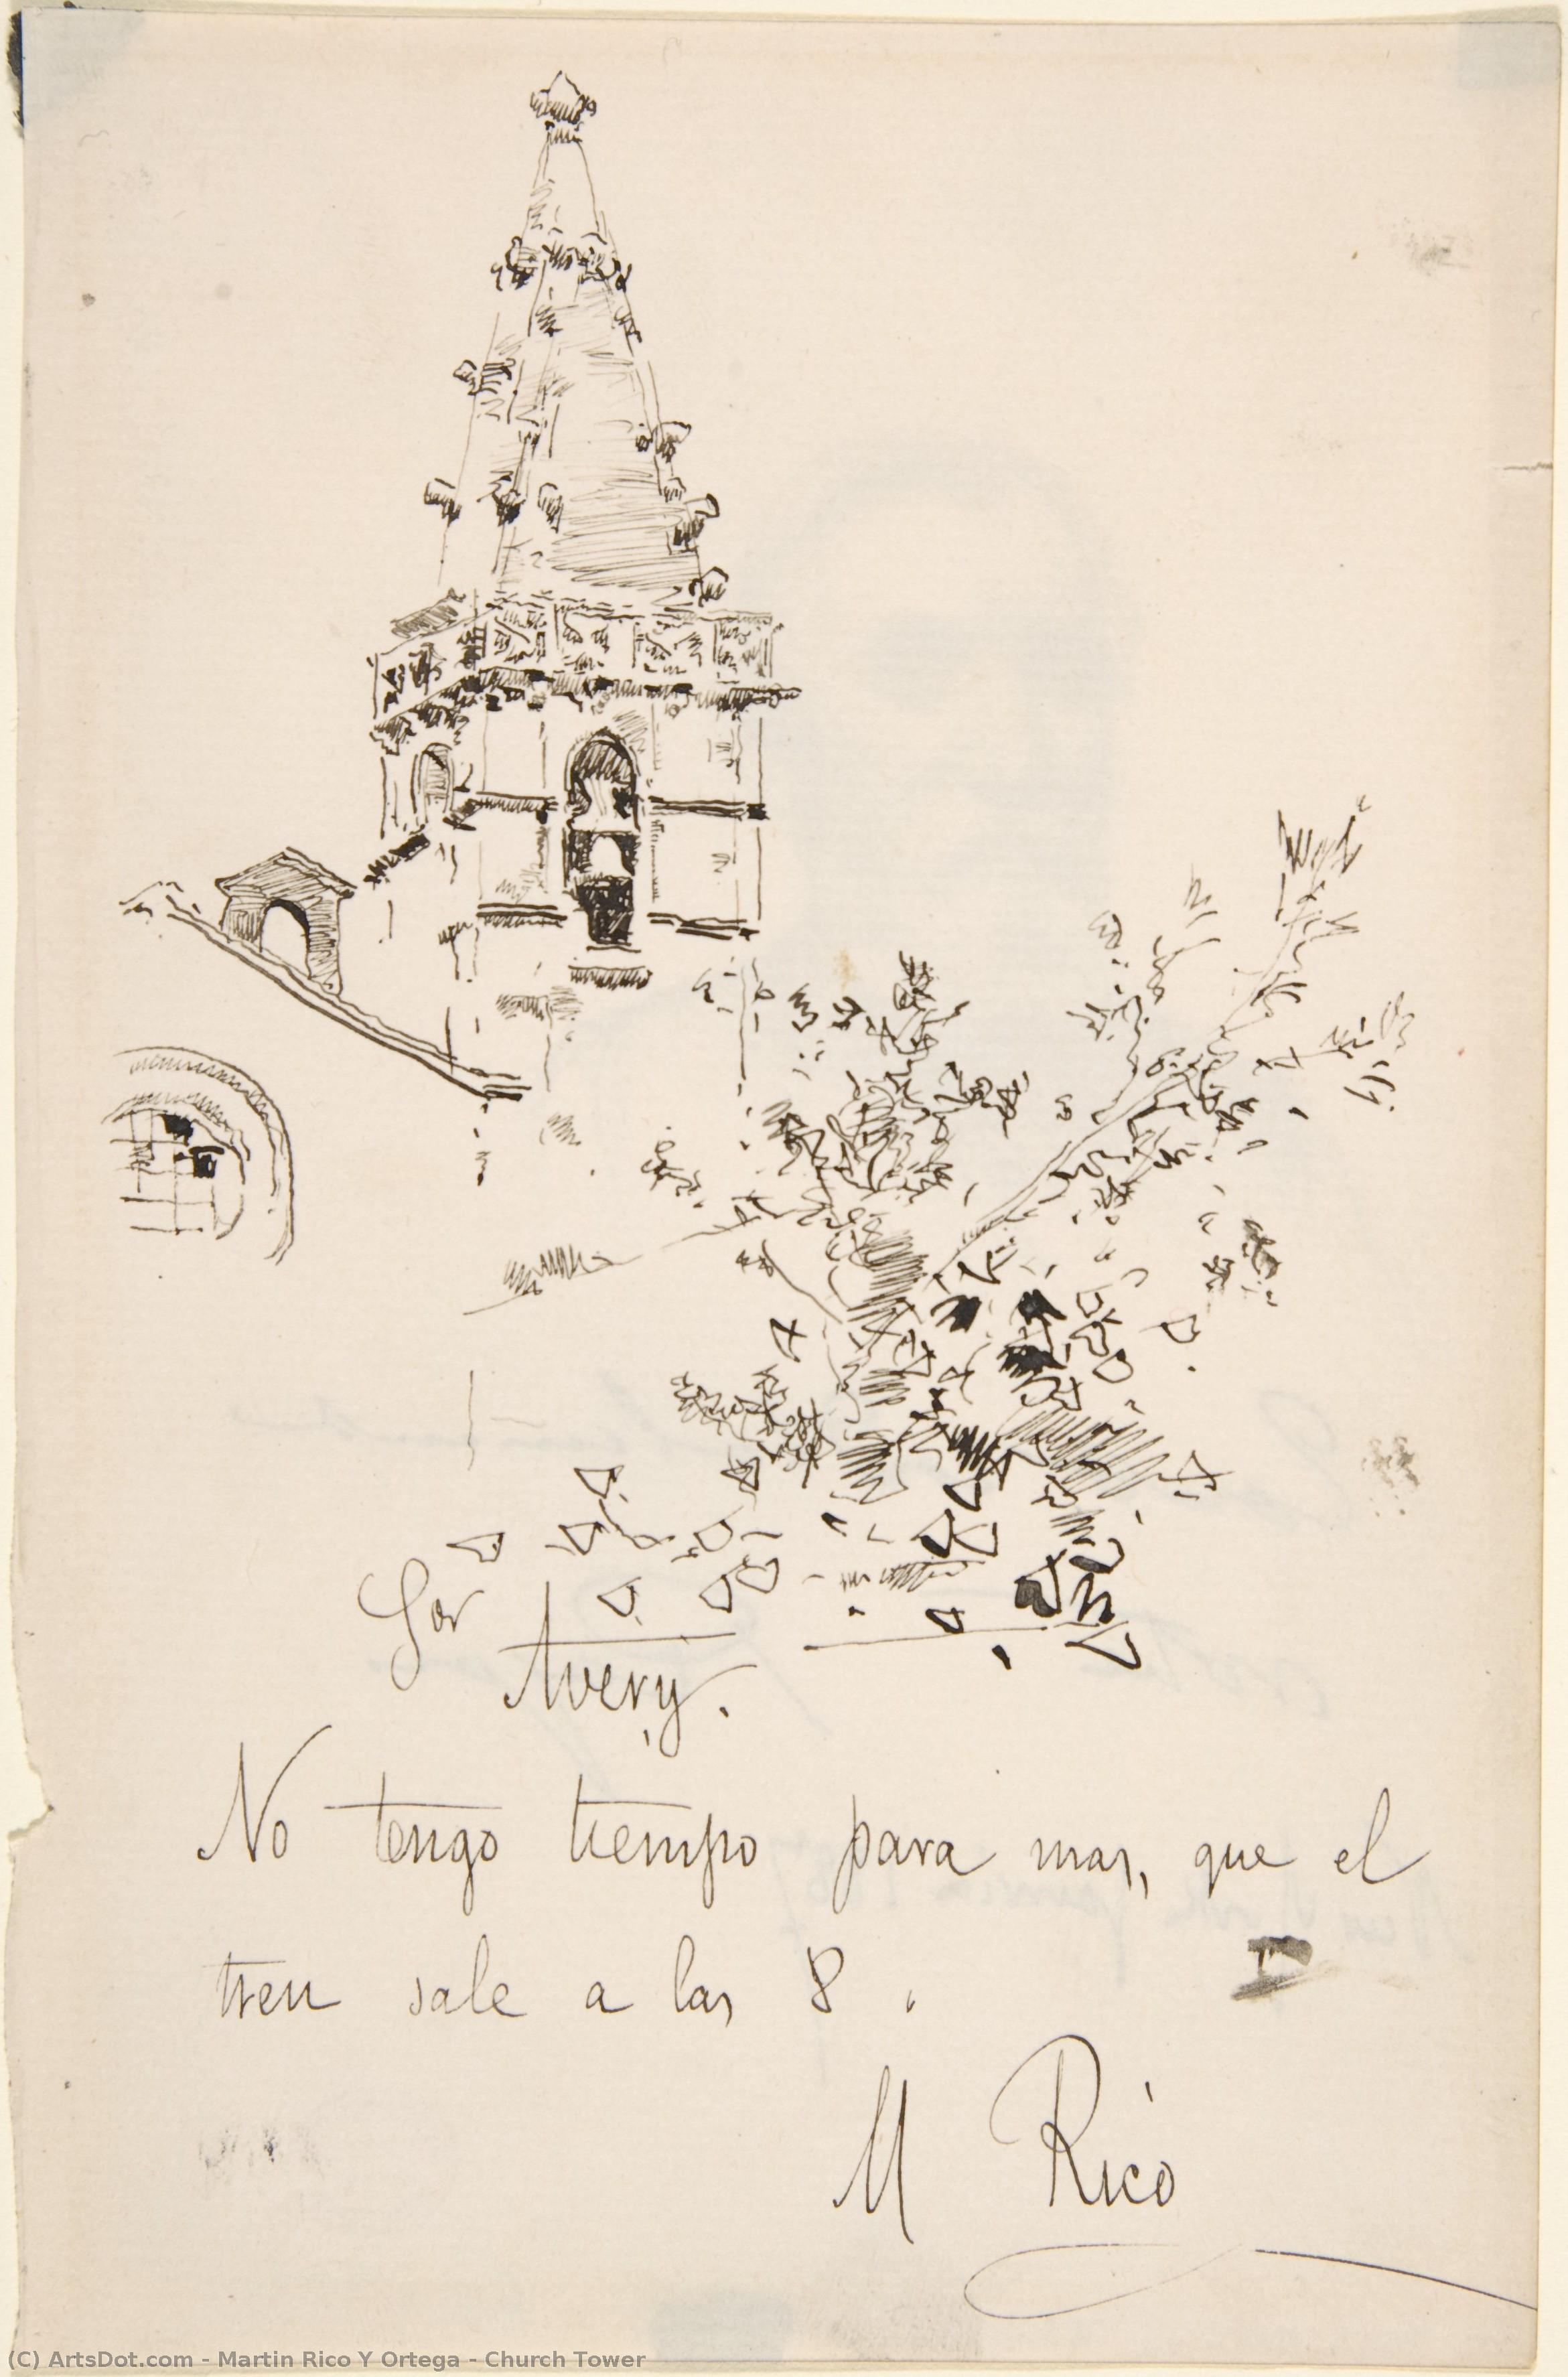 Sor
Avery.
No tengo tiempo para mas, que el
tren sale a las 8.
M Rico
(C) ArtsDot.com - Martin Rico Y Ortega - Church Tower